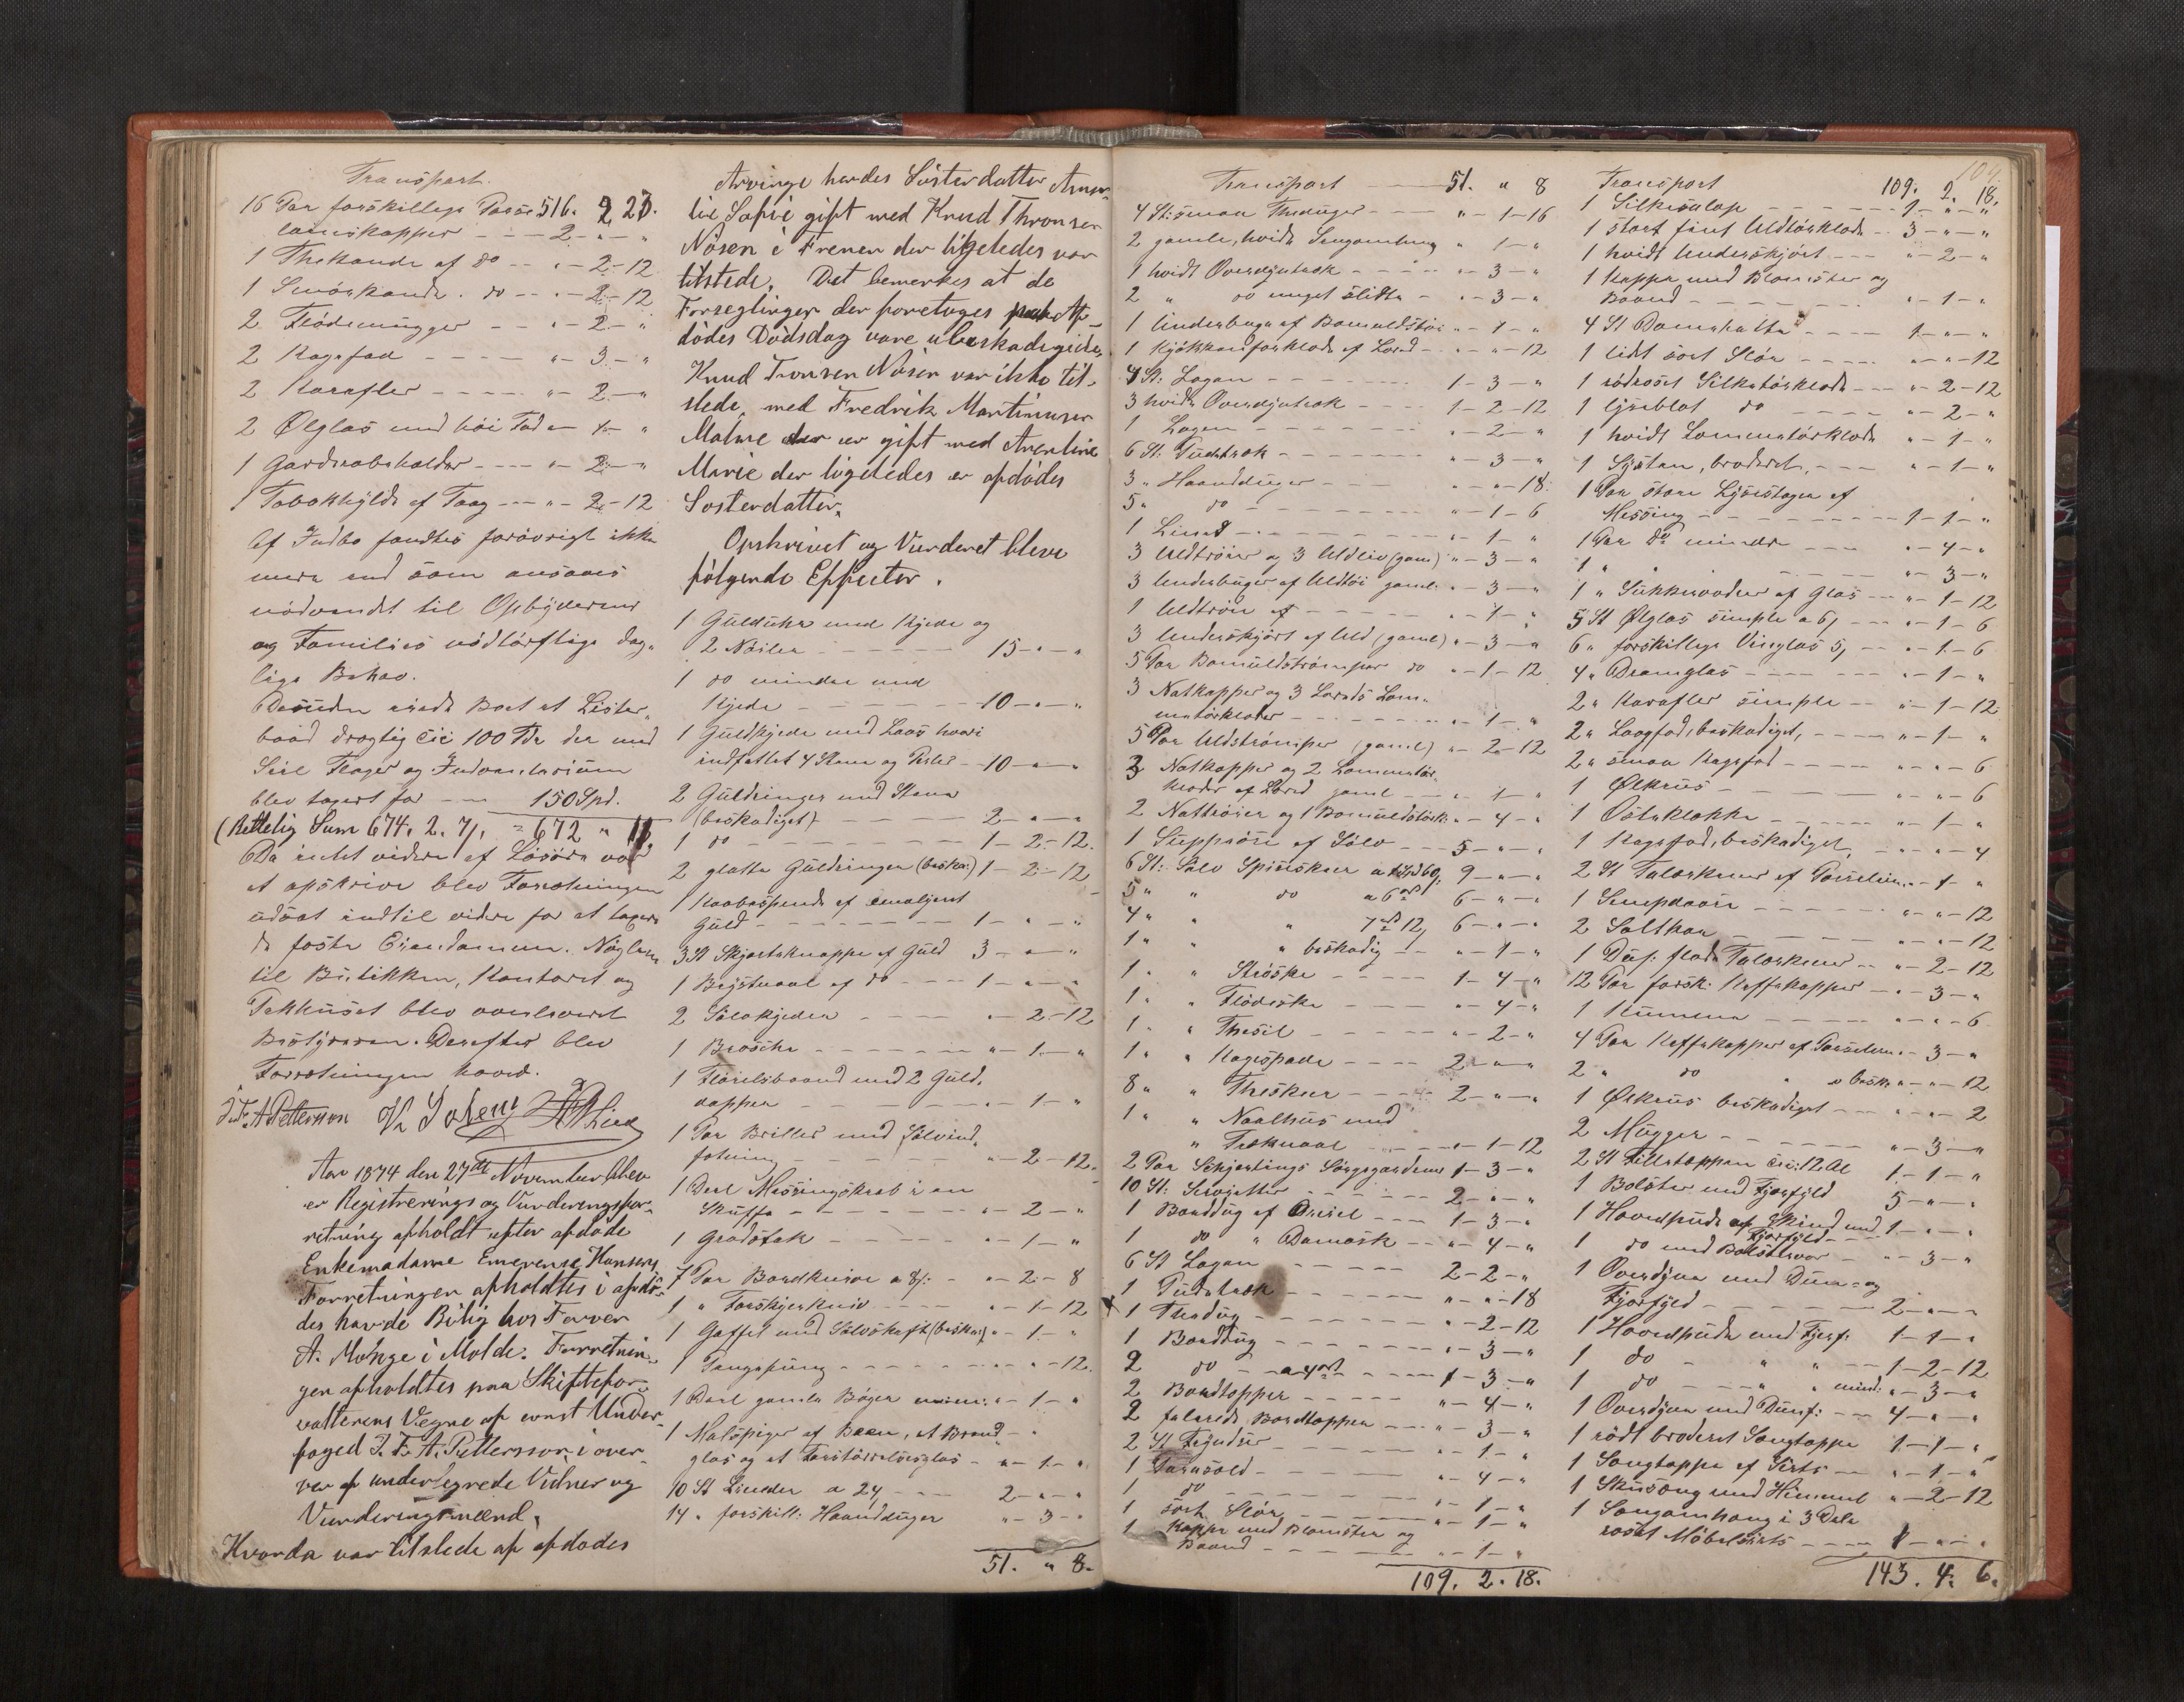 Transport.
16 Par forskillige Porse 516. 2 20.
lainskopper - - - 2 - " - "
1 Thekande af do - - " - 2 - 12
1 Smörkande. do - - " - 2 - 12
2 Flödemugger - - " - 2 - "
2 Kagefad - - - - " - 3 - "
2 Karafler - - - - " - 2 - "
2 Ølglas med höi Fod " - 1 - "
1 Garderobeholder - - - " - 2 - "
1 Tobakhylde af Træ - - - " - 2 - 12
Af Indbo fandtes forövrigt ikke
mere end som ansaaes
nödvendigt til Opbyderens
og Families nödtörftige dag-
lige Behov.
Desuden eiede Boet et Lister-
baad drægtig cic 100 Tdr der med
Seil Flager og Inventarium
blev taxeret for - - - 150 Spd.
(Rettelig Sum 674. 2. 7/. = 672 " 11
Da intet videre af Lösöre var
at opskrive blev Forretningen
udsat indtil videre for at taxere
de faste Eiendomme. Nöglerne
til Butikken, Kontoret og
Pakhuset blev overleveret
Bestyreren. Derefter blev
Forretningen hævet.
J. F. A Pettersson
Aar 1874 den 27de November blev
er Registrerings og Vurderingsfor-
retning afholdt efter afdöde
Enkemadame Emerense Hansen,
Forretningen afholdtes i afdö-
des havde Bolig hos Farver
A. Monge i Molde. Forretnin-
gen afholdtes paa Skiftefor-
valterens Vegne af const Under-
foged J. F. A. Pettersson i over-
vær af undertegnede Vidner og
Vurderingsmænd.
Hvorda var tilstede af afdödes
Arvinge hendes Sösterdatter Ama-
lie Sofie gift med Knud Thronsen
Nösen i Frenen der ligeledes var
tilstede. Det bemerkes at de
Forseglinger der foretoges paa Af-
dödes Dödsdag vare ubeskadigede.
Knud Tronsen Nösen var ikke til-
stede, med Fredrik Martinusen
Malme der er gift med Arentine
Marie der ligeledes er afdödes
Sosterdatter.
Opskrivet og Vurderet bleve
fölgende Effecter.
1 Gulduhr med Kjede og
2 Nöiler - - - - - - 15 - " - "
1 do mindre med
Kjede - - - - - - 10 - " - "
1 Guldkjede med Laas hvori
indfattet 4 Stene og Perler - 10 - " - "
2 Guldringer med Stene
(beskadiget) - - - - - 2 - " - "
1 do - - - - - - - 1 - 2 - 12.
2 glatte Guldringer (beskad:) 1 - 2 - 12
1 Kaabespende af emaljeret
Guld - - - - - - 1 - " - "
3 St Skjorteknapper af Guld 3 - " - "
1 Brystnaal af do - - - - 1 - " - "
2 Sölvkjeder - - - - " - 2 - 12
1 Brosche - - - - - - " - 1 - "
1 Flöielsbaand med 2 Guld-
dopper - - - - - - " - 1 - "
1 Par Briller med Sölvind-
fatning - - - - - - " - 2 - 12.
1 Deel Messingskrab i en
Skuffe - - - - - - " - 2 - "
1 Grydetak - - - - - " - 1 - "
7 Par Bordknive a 8/: - " - 2 - 8
1 " Forskjerkniv - - - " - 1 - 12
1 Gaffel med Sölvskaft (beskad:) " - 1 - "
1 Pengepung - - - - - " - " - 12.
1 Deel gamle Böger " - 1 - "
1 Malspiger af Been, et Brænd-
glas og et Forstörrelsesglas - " - 1 - "
10 St Linder a 24 - - - 2 - " - "
14 " forskill: Haandduger " - 3 - "
51. " 8.
Transport - - - 51. " 8
4 St: smaa Theduger - - - " - 1 - 16
2 gamle, hvide Sengomheng " 1 - "
1 hvidt Overdyntræk - - - " - 3 - "
2 " do meget slidte - " - 3 - "
1 Underbuxe af Bomuldstöi " - 1 - "
1 Kjökkenforklæde af Lærred - " - " - 12
4 St: Lagen - - - - - - 1 - 3 - "
3 hvide Overdyntræk - - - 1 - 2 - 12
1 Lagen - - - - - - - " - 2 - "
6 St: Pudetræk - - - - - " - 3 - "
3 " Haandduger - - - " - " - 18.
5 " do - - - - - - " - 1 - 6
1 Linned - - - - - - - " - 1 - "
3 Uldtröier og 3 Uldliv (gaml) " - 3 - "
3 Underbuxer af Uldtöi gaml " - 3 - "
1 Uldtröie af - - - - - " - 1 - "
3 Underskjört af Uld (gaml) " - 3 - "
5 Par Bomuldströmper do " - 1 - 12
3 Natkapper og 3 Lærreds Lom-
metörklæder - - - - - " - 1 - "
5 Par Uldströmper (gaml) " - 2 - 12
3 Natkapper og 2 Lommetör-
klæder af Lærred gaml - - " - 1 - "
2 Nattröier og 1 Bomuldstörk: " - 4 - "
1 Suppeöse af Sölv - - - 5 - " - "
6 St: Sölv Spiseskeer a 1 Spd 60/: 9 - " - "
5 " " do a 6 ort 6 - " - "
4 " " " 7 ort 12, 6 - " - "
1 " " " beskadig - - " - 1 - "
1 " " Ströske - - - - 1 - 4 - "
1 " " Flödeske - - - - " - 4 - "
1 " " Thesil - - - - - " - 2 - "
1 " " Kagespade - - - - 2 - " - "
8 " " Theskeer - - - - 2 - " - "
1 " " Naalhus med
" Træknaal - - - - " - 1 - 12
2 Par Schjertings Sengegardiner 1 - 3 - "
10 St: Servjetter - - - - - 2 - " - "
1 Borddug af Dreiel - - - 1 - 3 - "
1 do " Damask - - - " - 4 - "
6 St Lagen - - - - - 2 - 2 - "
1 Pudetræk - - - - - " - " - 18
1 Thedug - - - - - - " - 2 - 12
1 Borddug - - - - - - " - 3 - "
2 do - - a 4 ort - - - - 1 - 3 - "
2 Bordtepper - - - - - " - 4 - "
2 falerede Bordteppen - - - " - 3 - "
2 St - - - - - " - 1 - "
1 - - - - - - " - 4 - "
1 do - - - - - - " - 1 - "
1 sort Slör - - - - - " - 1 - "
1 Kappe med Blomster og
Baand - - - - - - " - 1 - "
109. 2. 18.
104.
Transport 109. 2. 18.
1 Silkesalop - - - - - 1 - " - "
1 stort fint Uldtörklæde - - 3 - " - "
1 hvidt Underskjört - - - " - 2 - "
1 Kappe med Blomster og
Baand - - - - - - " - 1 - "
4 St Damehatte - - - - 1 - " - "
1 lidt sort Slör - - - - " - " - 12
1 rödroset Silketörklæde - - " - 2 - 12
1 lyseblat do - - - - " - 2 - "
1 hvidt Lommetörklæde " - 1 - "
1 Systen, broderet, - - - " - 1 - "
1 Par store Lysestager af
Messing - - - - - - - 1 - 1 - "
1 Par do mindre - - - " - 4 - "
1 " " - - - - - " - 3 - "
1 " Sukkervaser af Glas - - " - 1 - 12
5 St Ølglas simple a 6, - - " - 1 - 6
6 " forskillige Vinglas 5, - - " - 1 - 6
4 " Dramglas - - - - - " - 1 - "
2 " Karafler simple - - " - 1 - 12
2 " Laagfad, beskadiget, - - - " - 1 - "
2 " smaa Kagefad - - - - " - " - 6
1 Ølkrus - - - - - - " - " - 6
1 Osteklokke - - - - - " - 1 - "
1 Kagefad, beskadiget, - - " - " - 4
2 St Talerkener af Porselein " - 1 - "
1 Sempdaase - - - - - " - " - 12
2 Saltkar - - - - - - " - " - 12
1 Dus: flade Talerkener - - " - 2 - 12
12 Par forsk: Kaffekopper - - " - 3 - "
1 Kumme - - - - - " - " - 6
4 Par Kaffekopper af Porselein " - 3 - "
2 " do " beskd " - " - 12
1 Ølkrus beskadiget - - - " - " - 2
2 Mugger - - - - - - " - 3 - "
2 St Filleteppen cic: 12 Al 1 - 1 - "
1 Bolster med Fjærfyld 5 - " - "
1 Hovedpude af Skind med 1 - " - "
Fjærfyld - -
1 do med Bolstervar - " - 3 - "
1 Overdyne med Dun- og
Fjærfyld - - - - - - 2 - " - "
1 Hovedpude med Fjerf: 1 - 1 - "
1 do - " " - - 1 - 2 - 12
1 do - - " " mind: " - 3 - "
1 Overdyne med Dunf: - - 4 - " - "
1 rödt broderet Sengteppe 1 - 1 - "
1 Sengteppe af Sirts - - " - 1 - "
1 Skuseng med Himmel " - 2 - 12
1 Sengomheng i 3 Dele
roset Möbelsirts - - - 1 - " - "
143. 4. 6.